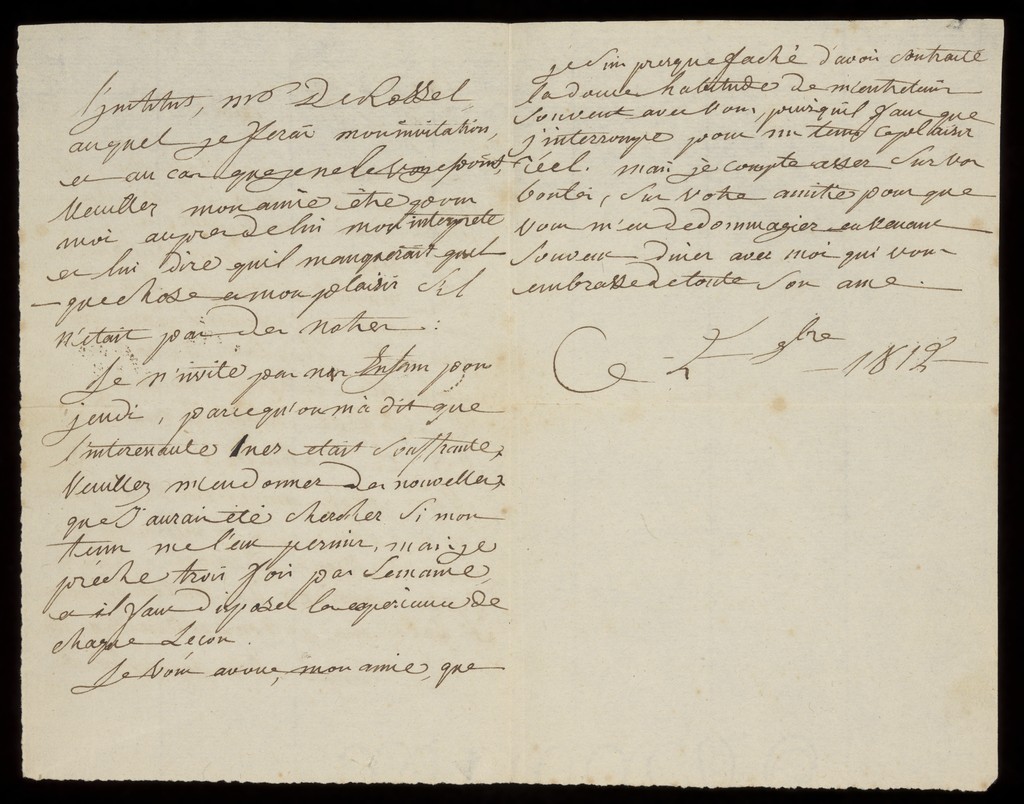 l'institut, mr De Rossel
auquel je ferai mon invitation,
et au cas que je ne le voye point,
veuillez mon amie être pour
moi aupres de lui mon interprete
et lui dire quil manqueroit quel
que chose a mon plaisir s'il
n'etait pas des notres :
Je n'invite pas nos Enfans pour
jeudi, parcequ'on m'a dit que
l'interessante Ines etait souffrante,
veuillez m'en donner des nouvelles,
que j'aurais été chercher si mon
tems me l'eut permis, mais je
prêche trois fois par semaine,
et il faut disposer les experiences de
chaque Leçon.
Je vous avoue, mon amie, que
je suis presque faché d'avoir contracté
la douce habitude de m'entretenir
souvent avec vous, puisquil faut que
j'interrompe pour un tems ce plaisir
réel. mais je compte assez sur vos
bontés, sur votre amitié pour que
vous m'en dedommagiez en venant
souvent diner avec moi qui vous
embrasse de toute son ame.
Ce 2 9bre 1812